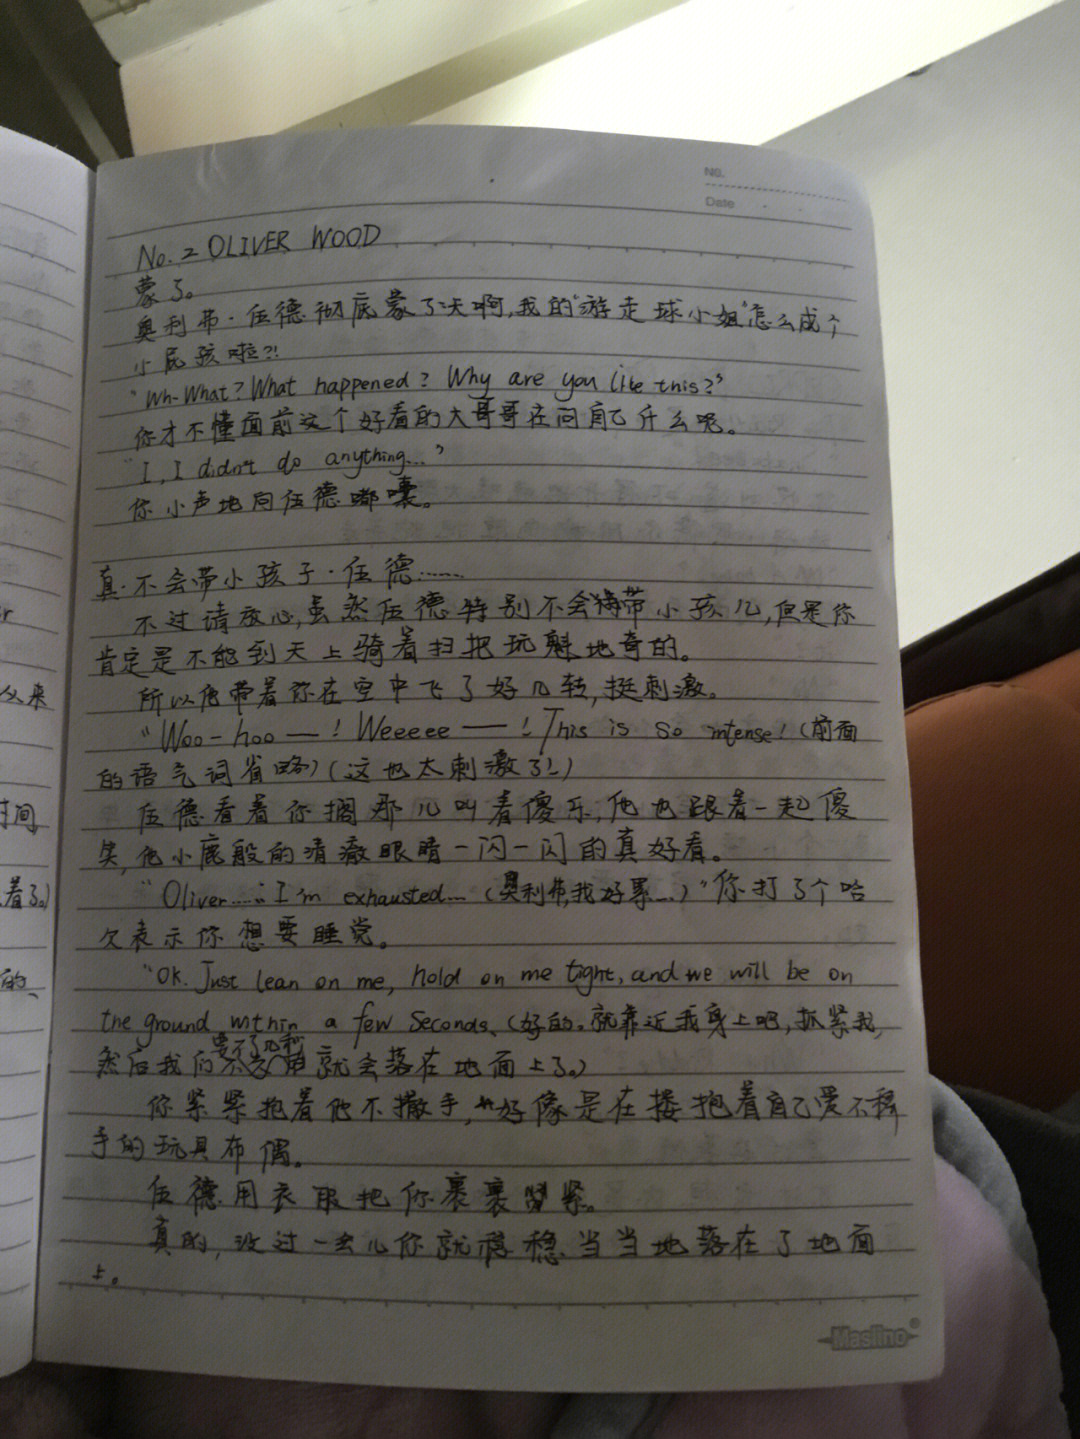 No.
Date
No.2 OLIVER WOOD
蒙了。
奥利弗·伍德彻底蒙了:天啊,我的“游走球小姐”怎么成个
小屁孩啦?!
“Wh-What? What happened? Why are you like this?”
你才不懂面前这个好看的大哥哥在问自己什么呢。
“I, I didn't do anything...”
你小声地向伍德嘟囔。
真·不会带小孩子·伍德……
不过请放心,虽然伍德特别不会带小孩儿,但是你
肯定是不能到天上骑着扫把玩魁地奇的。
所以他带着你在空中飞了好几转,挺刺激。
“Woo-hoo——! Weeeee——! This is so intense! (前面
的语气词省略)(这也太刺激了!)
伍德看着你搁那儿叫着傻乐,他也跟着一起傻
笑,他小鹿般的清澈眼睛一闪一闪的真好看。
“Oliver……I'm exhausted...(奥利弗,我好累...)”你打了个哈
欠表示你想要睡觉。
“OK. Just lean on me, hold on me tight, and we will be on
the ground within a few seconds.(好的。就靠近我身上吧,抓紧我,
然后我们要不了几秒就会落在地面上了。)
你紧紧抱着他不撒手,好像是在搂抱着自己爱不释
手的玩具布偶。
伍德用衣服把你裹裹紧。
真的,没过一会儿你就稳稳当当地落在了地面
上。
Maslino
er
从来
时间
着了。)
的、